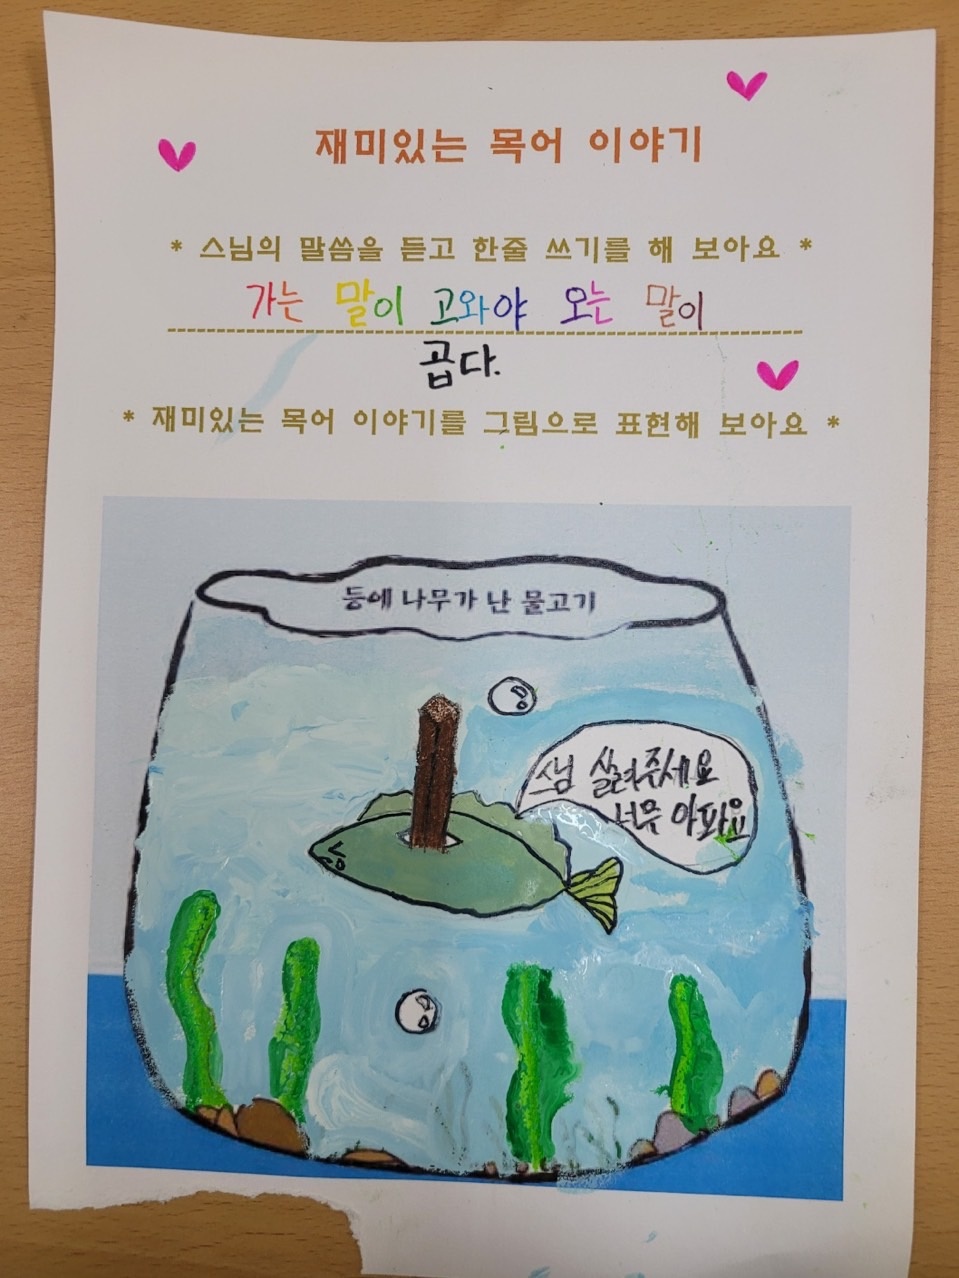 재미있는 목어 이야기
* 스님의 말씀을 듣고 한줄 쓰기를 해 보아요 *
가는 말이 고와야 오는 말이
곱다.
* 재미있는 목어 이야기를 그림으로 표현해 보아요 *
등에 나무가 난 물고기
스님 살려주세요
너무 아파요